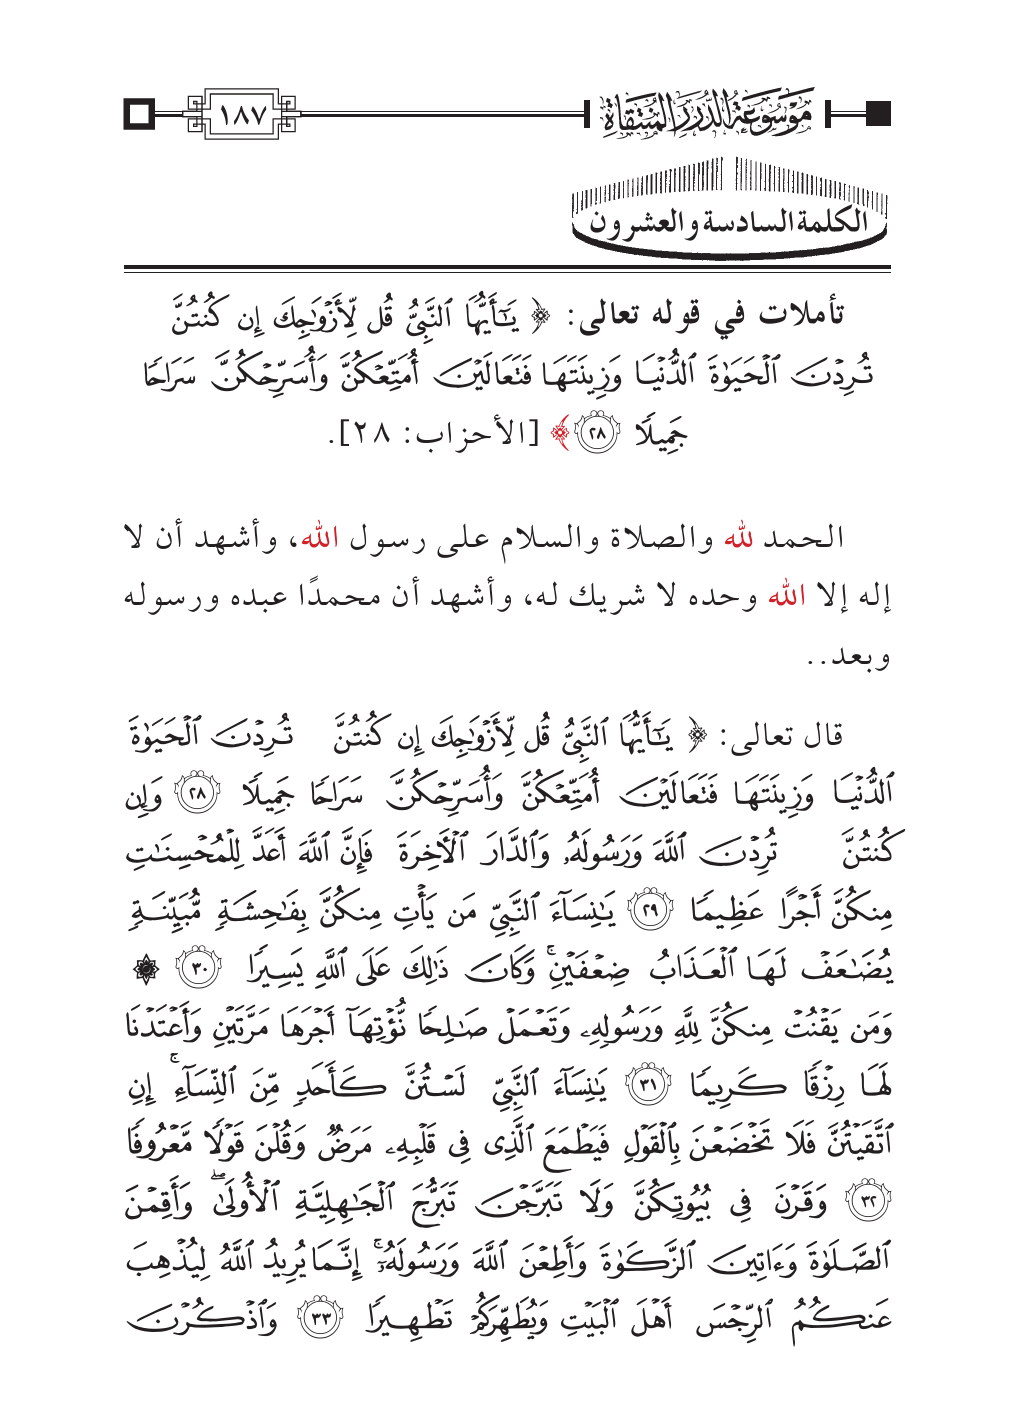 موسوعة الدرر المنتقاة
١٨٧
الكلمة السادسة والعشرون
تأملات في قوله تعالى: ﴿ يَٰٓأَيُّهَا ٱلنَّبِيُّ قُل لِّأَزْوَٰجِكَ إِن كُنتُنَّ
تُرِدْنَ ٱلْحَيَوٰةَ ٱلدُّنْيَا وَزِينَتَهَا فَتَعَالَيْنَ أُمَتِّعْكُنَّ وَأُسَرِّحْكُنَّ سَرَاحًا
جَمِيلًا ٢٨ ﴾ [الأحزاب: ٢٨].
الحمد لله والصلاة والسلام على رسول الله، وأشهد أن لا
إله إلا الله وحده لا شريك له، وأشهد أن محمدًا عبده ورسوله
وبعد..
قال تعالى: ﴿ يَٰٓأَيُّهَا ٱلنَّبِيُّ قُل لِّأَزْوَٰجِكَ إِن كُنتُنَّ تُرِدْنَ ٱلْحَيَوٰةَ
ٱلدُّنْيَا وَزِينَتَهَا فَتَعَالَيْنَ أُمَتِّعْكُنَّ وَأُسَرِّحْكُنَّ سَرَاحًا جَمِيلًا ٢٨ وَإِن
كُنتُنَّ تُرِدْنَ ٱللَّهَ وَرَسُولَهُۥ وَٱلدَّارَ ٱلْأَخِرَةَ فَإِنَّ ٱللَّهَ أَعَدَّ لِلْمُحْسِنَٰتِ
مِنكُنَّ أَجْرًا عَظِيمًا ٢٩ يَٰنِسَآءَ ٱلنَّبِيِّ مَن يَأْتِ مِنكُنَّ بِفَٰحِشَةٍ مُّبَيِّنَةٍ
يُضَٰعَفْ لَهَا ٱلْعَذَابُ ضِعْفَيْنِ ۚ وَكَانَ ذَٰلِكَ عَلَى ٱللَّهِ يَسِيرًا ٣٠ ۞
وَمَن يَقْنُتْ مِنكُنَّ لِلَّهِ وَرَسُولِهِۦ وَتَعْمَلْ صَٰلِحًا نُّؤْتِهَآ أَجْرَهَا مَرَّتَيْنِ وَأَعْتَدْنَا
لَهَا رِزْقًا كَرِيمًا ٣١ يَٰنِسَآءَ ٱلنَّبِيِّ لَسْتُنَّ كَأَحَدٍ مِّنَ ٱلنِّسَآءِ ۚ إِنِ
ٱتَّقَيْتُنَّ فَلَا تَخْضَعْنَ بِٱلْقَوْلِ فَيَطْمَعَ ٱلَّذِى فِى قَلْبِهِۦ مَرَضٌ وَقُلْنَ قَوْلًا مَّعْرُوفًا
٣٢ وَقَرْنَ فِى بُيُوتِكُنَّ وَلَا تَبَرَّجْنَ تَبَرُّجَ ٱلْجَٰهِلِيَّةِ ٱلْأُولَىٰ ۖ وَأَقِمْنَ
ٱلصَّلَوٰةَ وَءَاتِينَ ٱلزَّكَوٰةَ وَأَطِعْنَ ٱللَّهَ وَرَسُولَهُۥٓ ۚ إِنَّمَا يُرِيدُ ٱللَّهُ لِيُذْهِبَ
عَنكُمُ ٱلرِّجْسَ أَهْلَ ٱلْبَيْتِ وَيُطَهِّرَكُمْ تَطْهِيرًا ٣٣ وَٱذْكُرْنَ